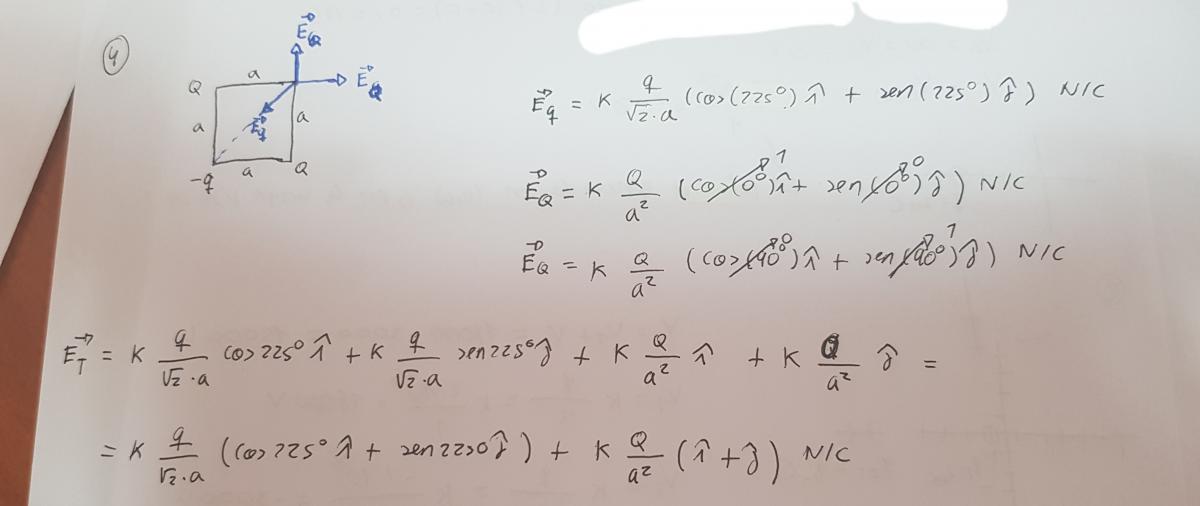 4
E⃗_Q
a
Q
E⃗_Q
a
E⃗_q
a
-q
a
Q
E⃗_q = K q/(√2·a) (cos(225°) î + sen(225°) ĵ) N/C
E⃗_Q = K Q/a² (cos(0°) 1 î + sen(0°) 0 ĵ) N/C
E⃗_Q = K Q/a² (cos(90°) 0 î + sen(90°) 1 ĵ) N/C
E⃗_T = K q/(√2·a) cos 225° î + K q/(√2·a) sen 225° ĵ + K Q/a² î + K Q/a² ĵ =
= K q/(√2·a) (cos 225° î + sen 2250 ĵ) + K Q/a² (î + ĵ) N/C